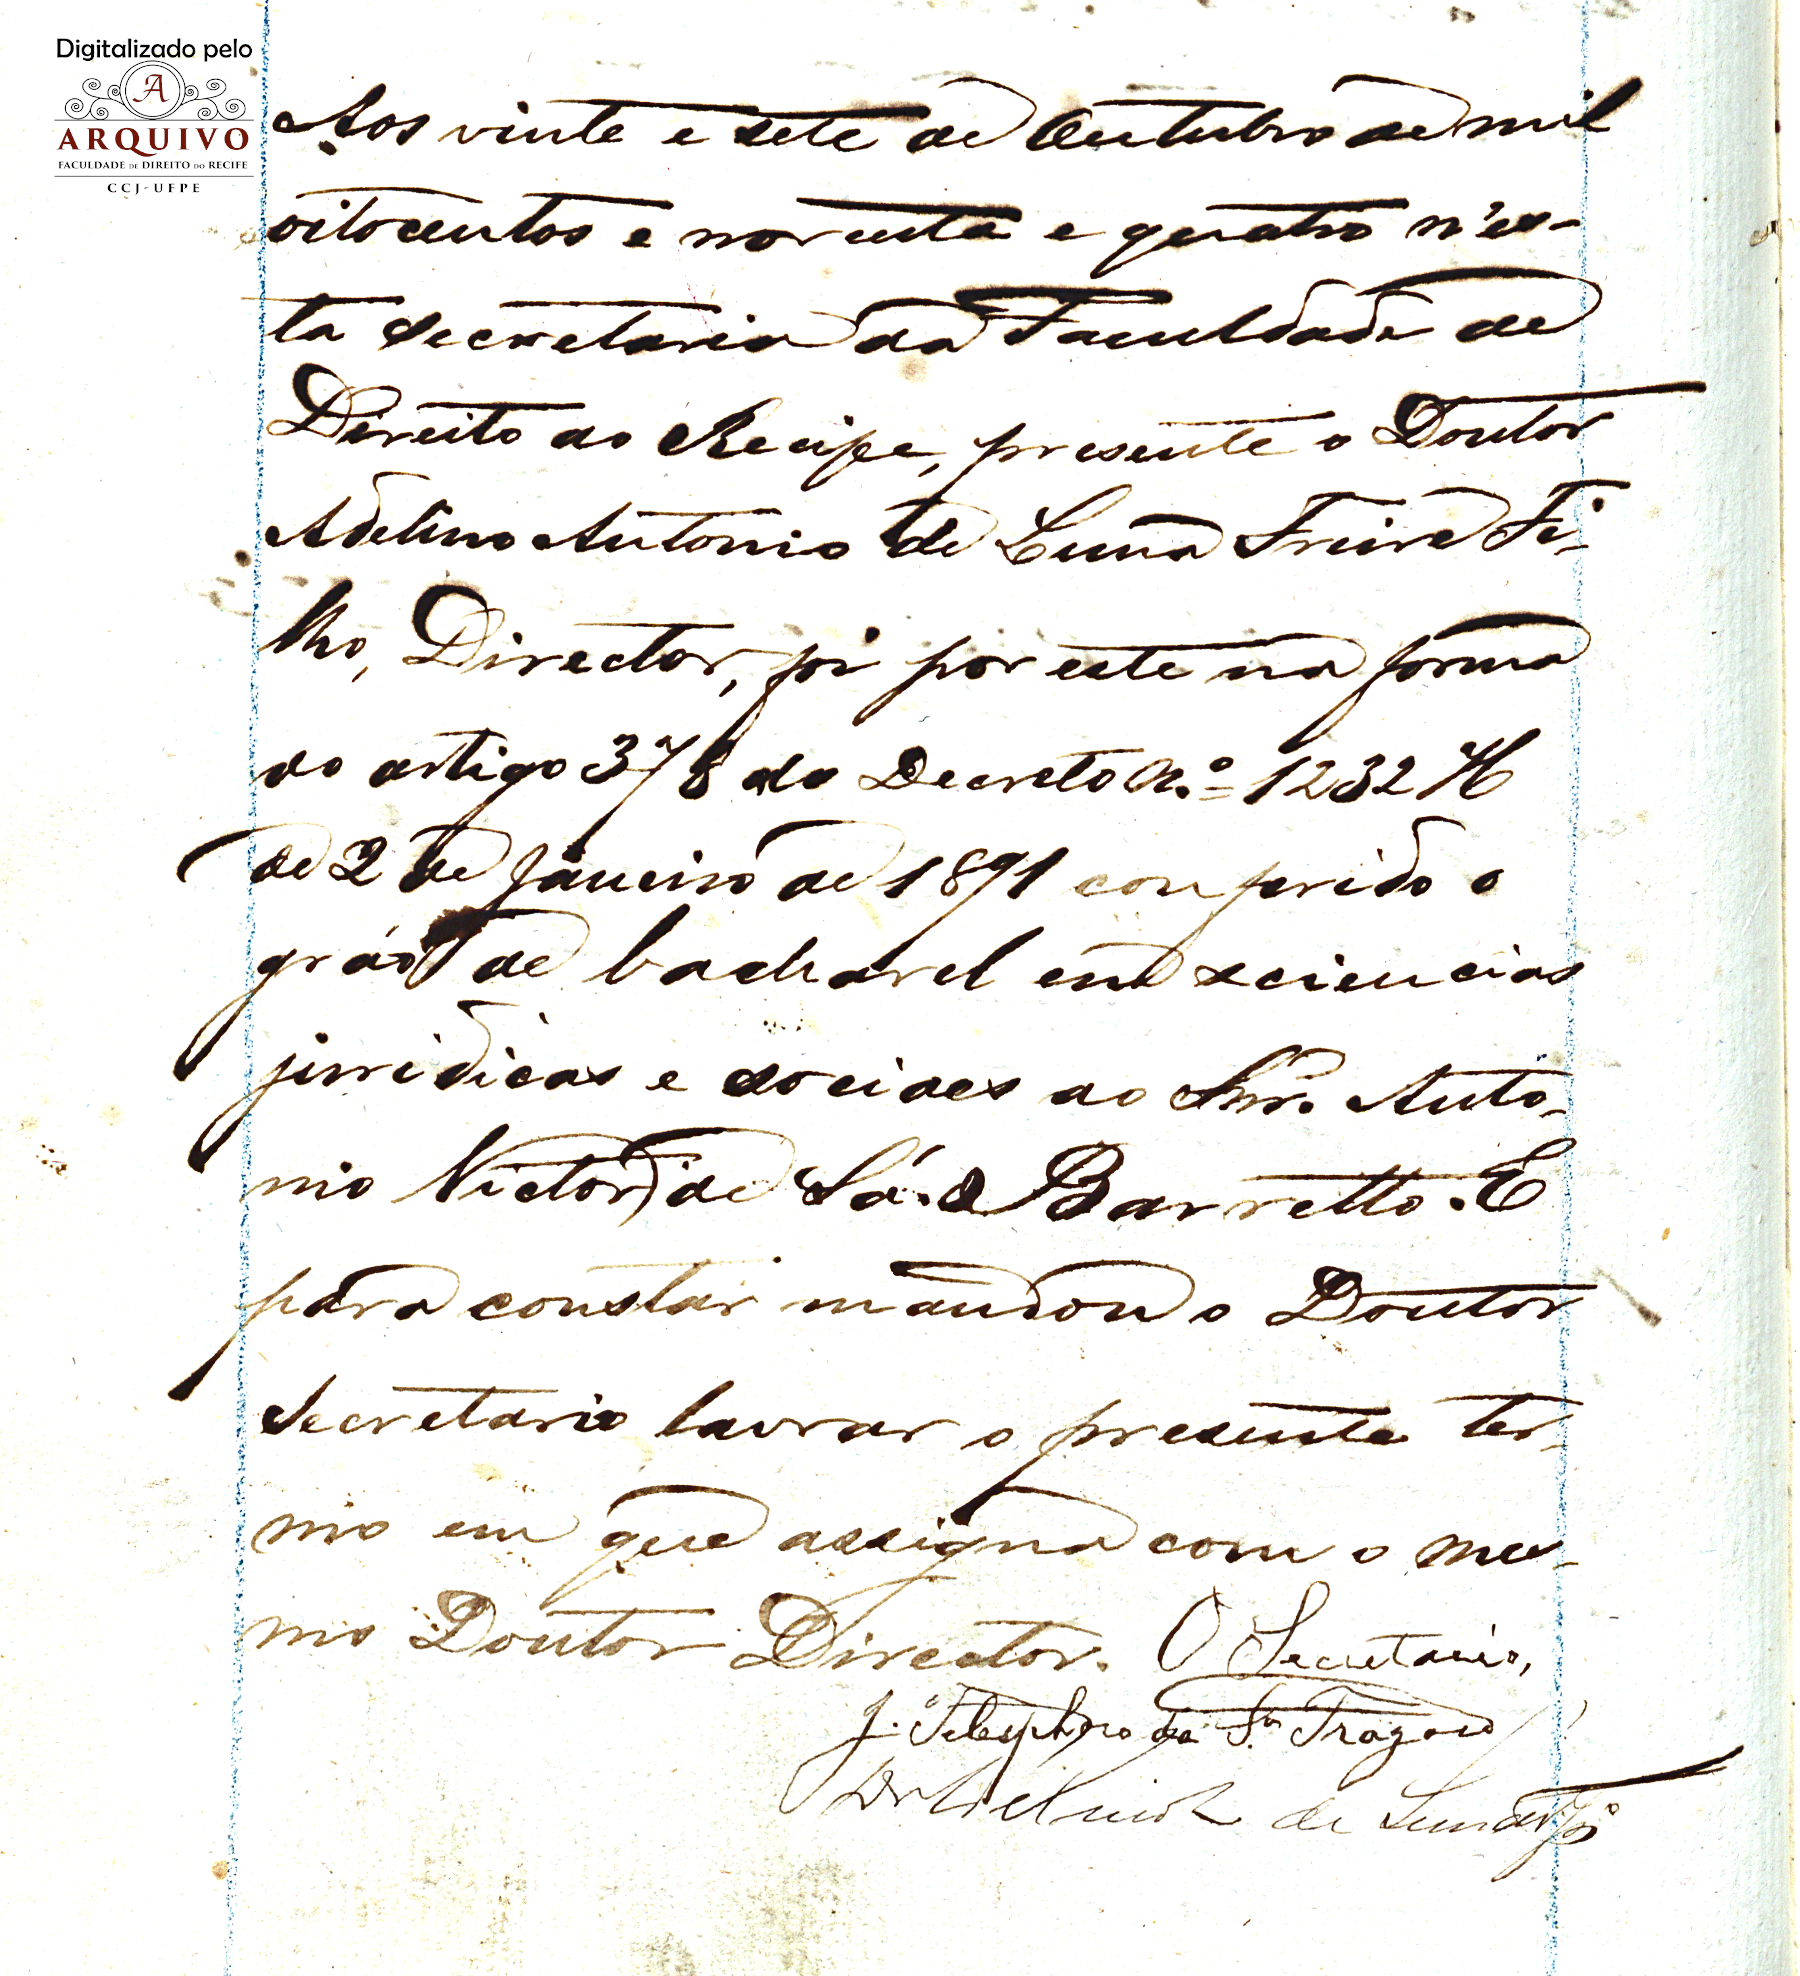 Digitalizado pelo
A
ARQUIVO
FACULDADE DE DIREITO DO RECIFE
CCJ-UFPE
Aos vinte e sete de Outubro de mil
oitocentos e noventa e quatro n'es-
ta secretaria da Faculdade de
Direito do Recife, presente o Doutor
Adelino Antonio de Luna Freire Fi-
lho, Director, foi por este na forma
do artigo 378 do Decreto N.º 1232 H
de 2 de Janeiro de 1891 conferido o
gráo de bacharel em sciencias
juridicas e sociaes ao Snr. Anto-
nio Victor de Sá e Barretto. E
para constar mandou o Doutor
Secretario lavrar o presente ter-
mo em que assigna com o mes-
mo Doutor Director. O Secretario,
J. Telesphoro da S.ª Fragoso
Dr de Luna